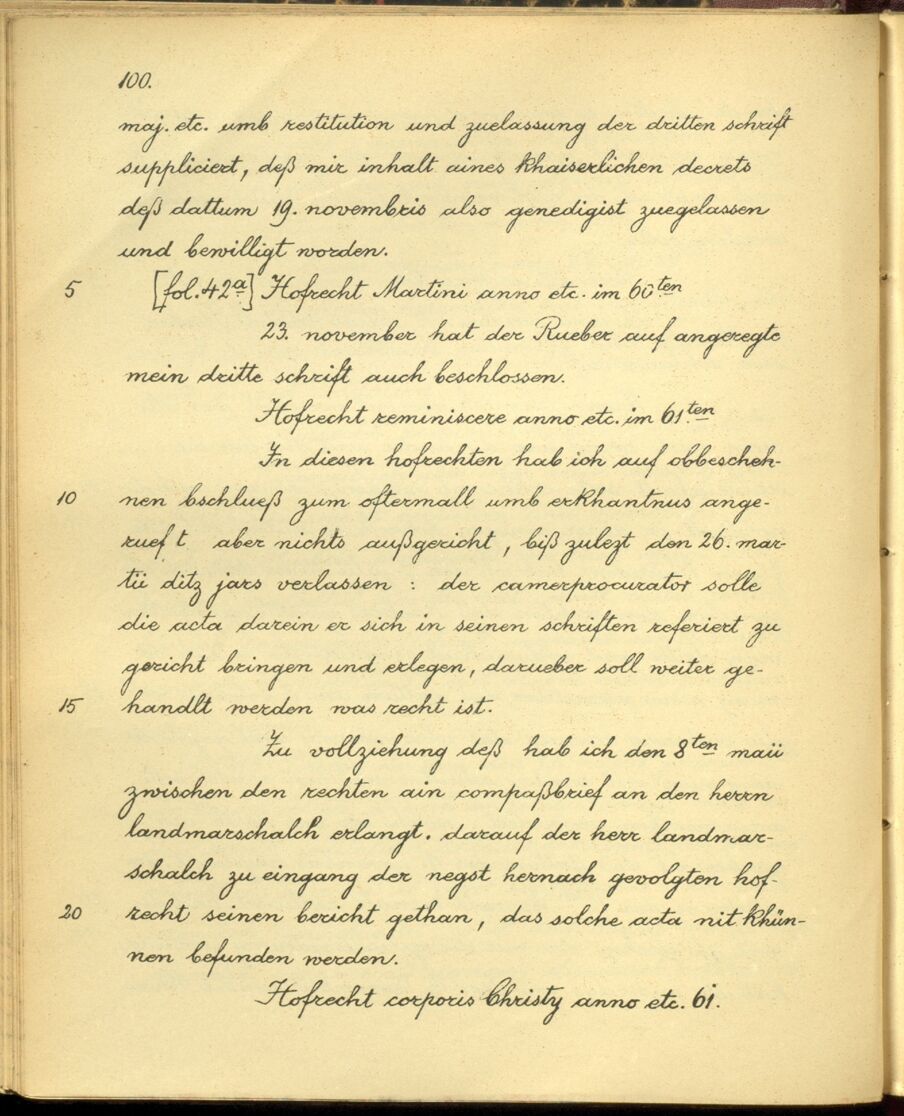 100.
maj. etc. umb restitution und zuelassung der dritten schrift
suppliciert, deß mir inhalt aines khaiserlichen decrets
deß dattum 19. novembris also genedigist zuegelassen
und bewilligt worden.
5 [fol. 42ª] Hofrecht Martini anno etc. im 60ten
23. november hat der Rueber auf angeregte
mein dritte schrift auch beschlossen.
Hofrecht reminiscere anno etc. im 61ten
In diesen hofrechten hab ich auf obbescheh-
10 nen bschlueß zum oftermall umb erkhantnus ange-
rueft aber nichts außgericht, biß zulezt den 26. mar-
tii ditz jars verlassen : der camerprocurator solle
die acta darein er sich in seinen schriften referiert zu
gericht bringen und erlegen, darueber soll weiter ge-
15 handlt werden was recht ist.
Zu vollziehung deß hab ich den 8ten maii
zwischen den rechten ain compaßbrief an den herrn
landmarschalch erlangt. darauf der herr landmar-
schalch zu eingang der negst hernach gevolgten hof-
20 recht seinen bericht gethan, das solche acta nit khün-
nen befunden werden.
Hofrecht corporis Christy anno etc. 61.